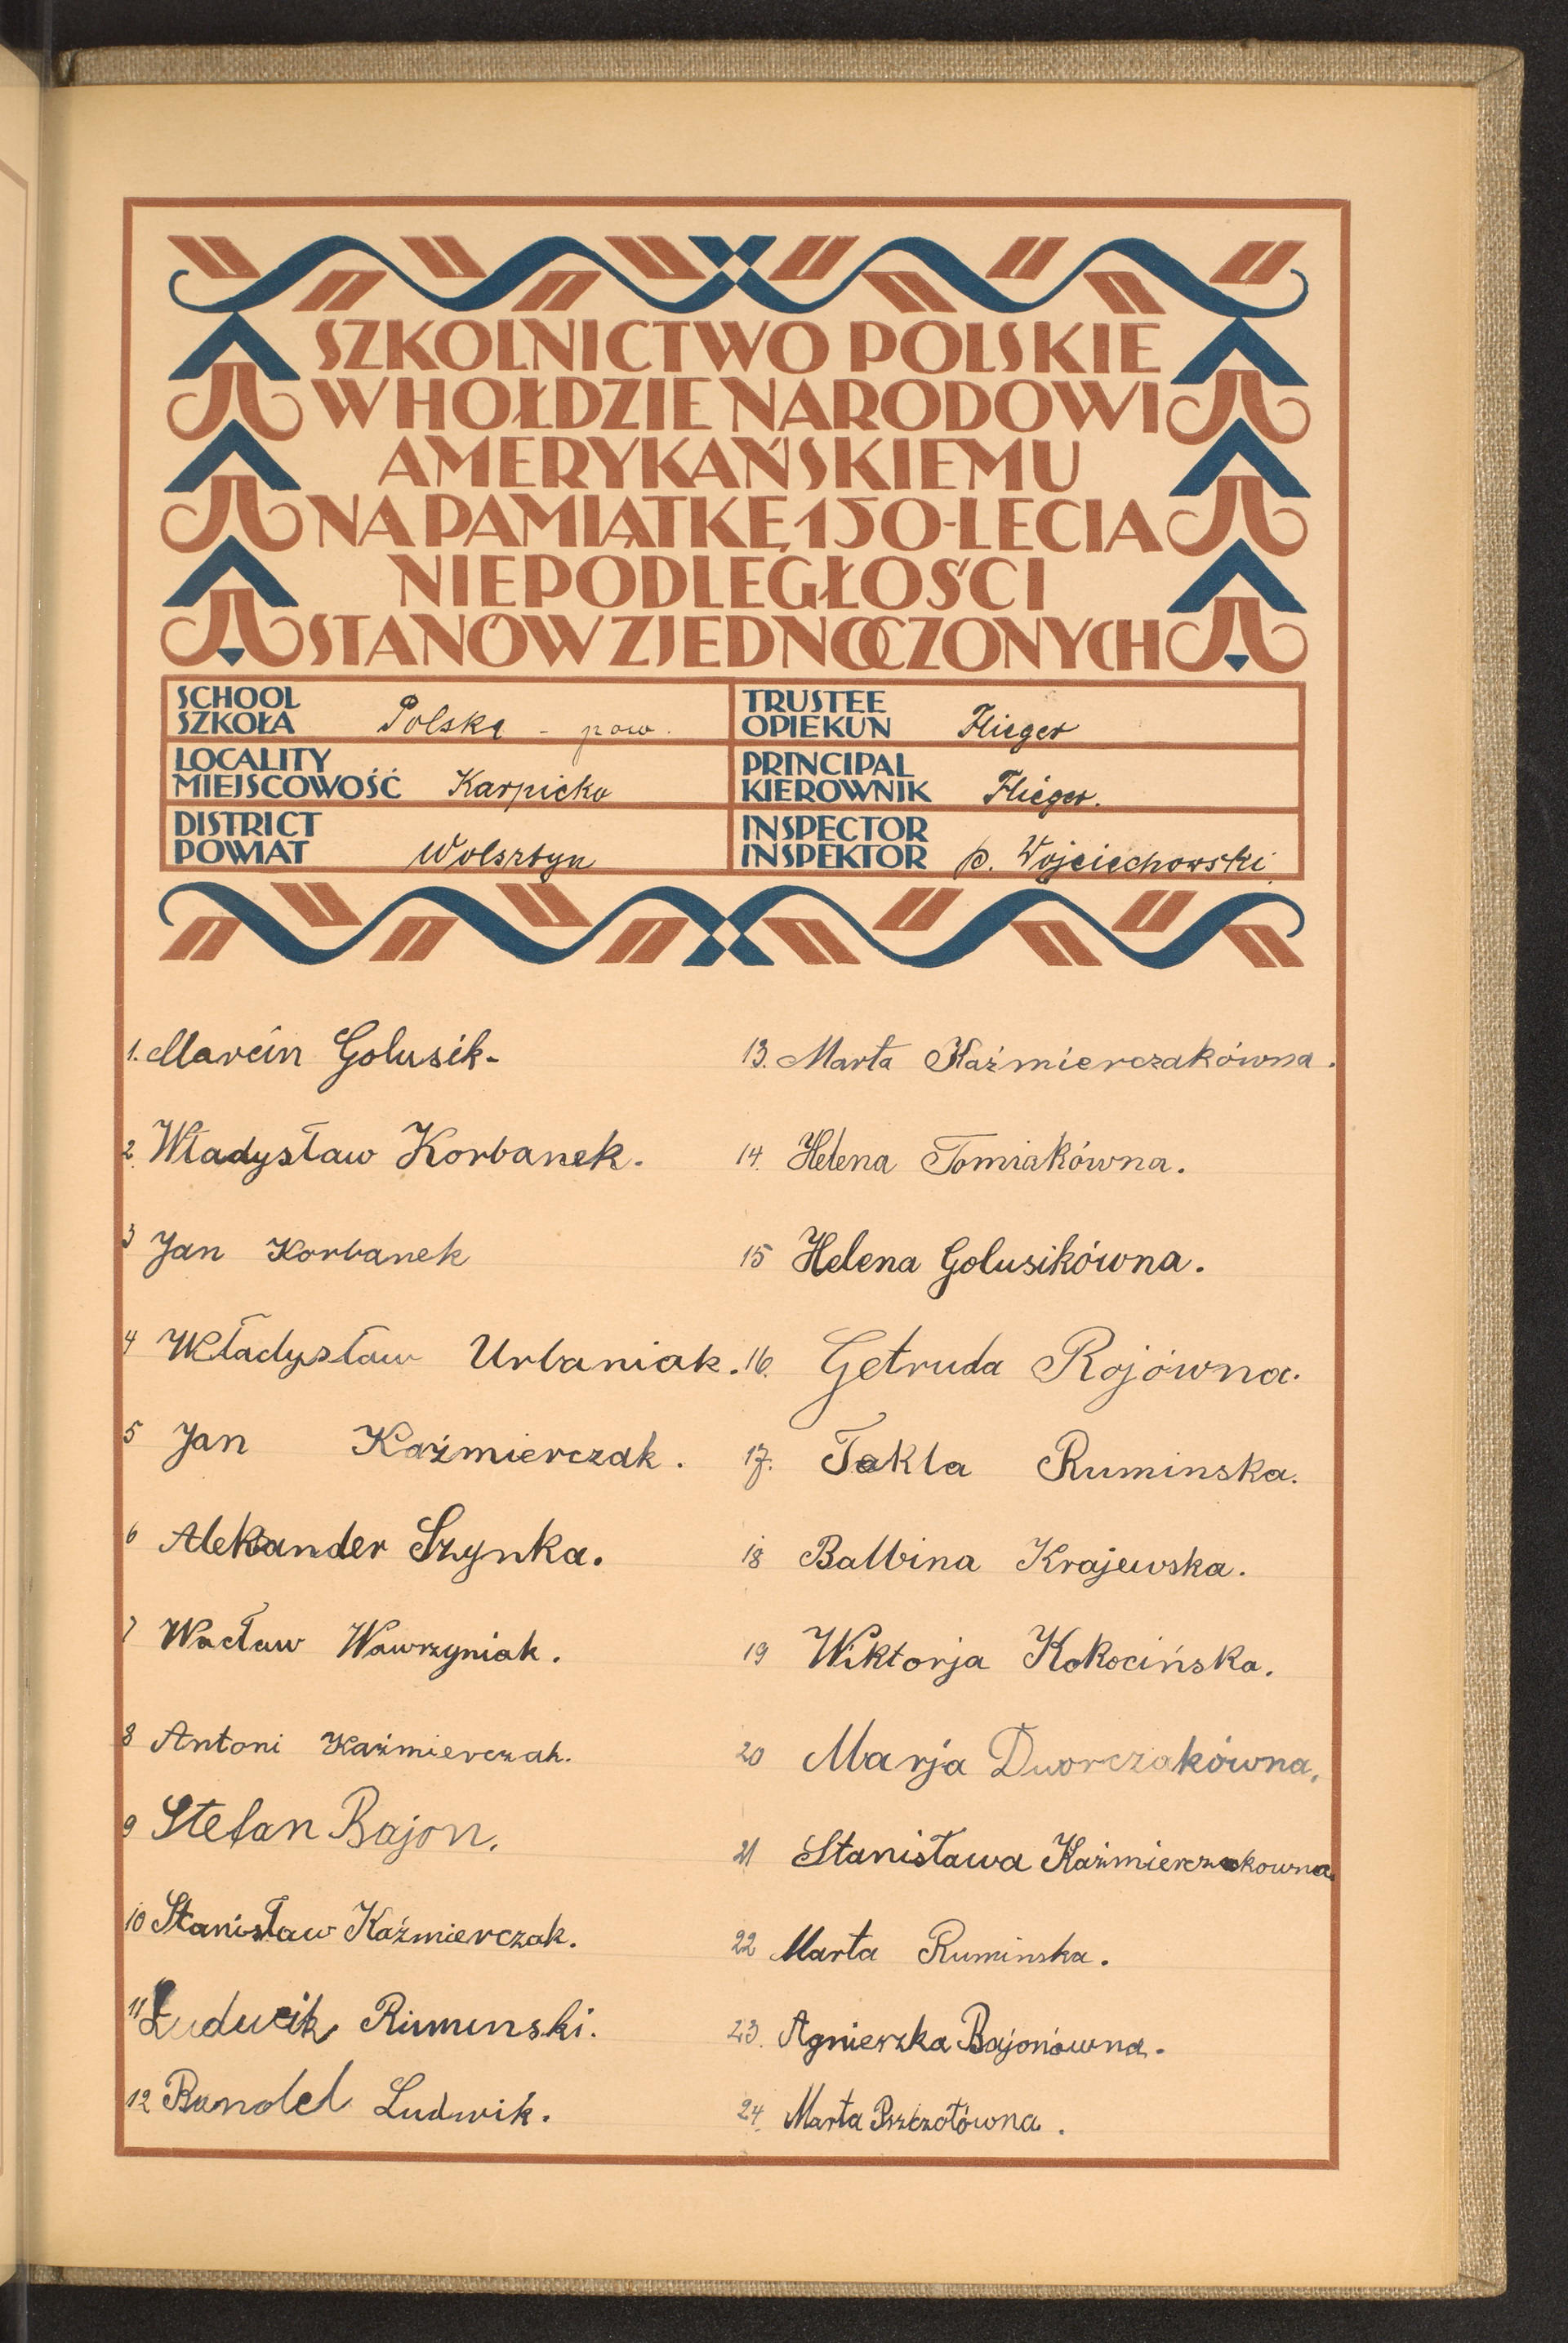 SZKOLNICTWO POLSKIE
W HOŁDZIE NARODOWI
AMERYKAŃSKIEMU
NA PAMIĄTKĘ 150-LECIA
NIEPODLEGŁOŚCI
STANÓW ZJEDNOCZONYCH
SCHOOL
SZKOŁA Polska - pow.
TRUSTEE
OPIEKUN Flieger
LOCALITY
MIEJSCOWOŚĆ Karpicko
PRINCIPAL
KIEROWNIK Flieger.
DISTRICT
POWIAT Wolsztyn
INSPECTOR
INSPEKTOR p. Wojciechowski
1. Marcin Golusik-
2. Władysław Korbanek.
3 Jan Korbanek
4 Władysław Urbaniak.
5 Jan Kaźmierczak.
6 Aleksander Szynka.
7 Wacław Wawrzyniak.
8 Antoni Kaźmierczak.
9 Stefan Bajon.
10 Stanisław Kaźmierczak.
11 Ludwik Ruminski.
12 Bandel Ludwik.
13. Marta Kaźmierczakówna.
14. Helena Tomiakówna.
15 Helena Golusikówna.
16. Getruda Rojówna.
17. Tekla Ruminska.
18 Balbina Krajewska.
19 Wiktorja Kokocińska.
20 Marja Dworczakówna,
21 Stanisława Kaźmierczakowna.
22 Marta Ruminska.
23. Agnieszka Bajonówna.
24. Marta Pszczołówna.